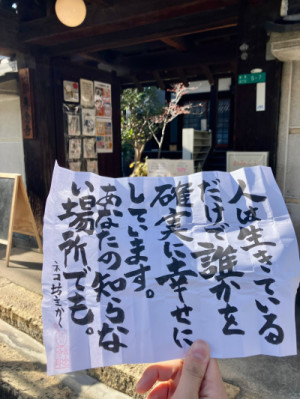 人は生きている
だけで誰かを
確実に幸せに
しています。
あなたの知らな
い場所でも。
ネコ坊主かく